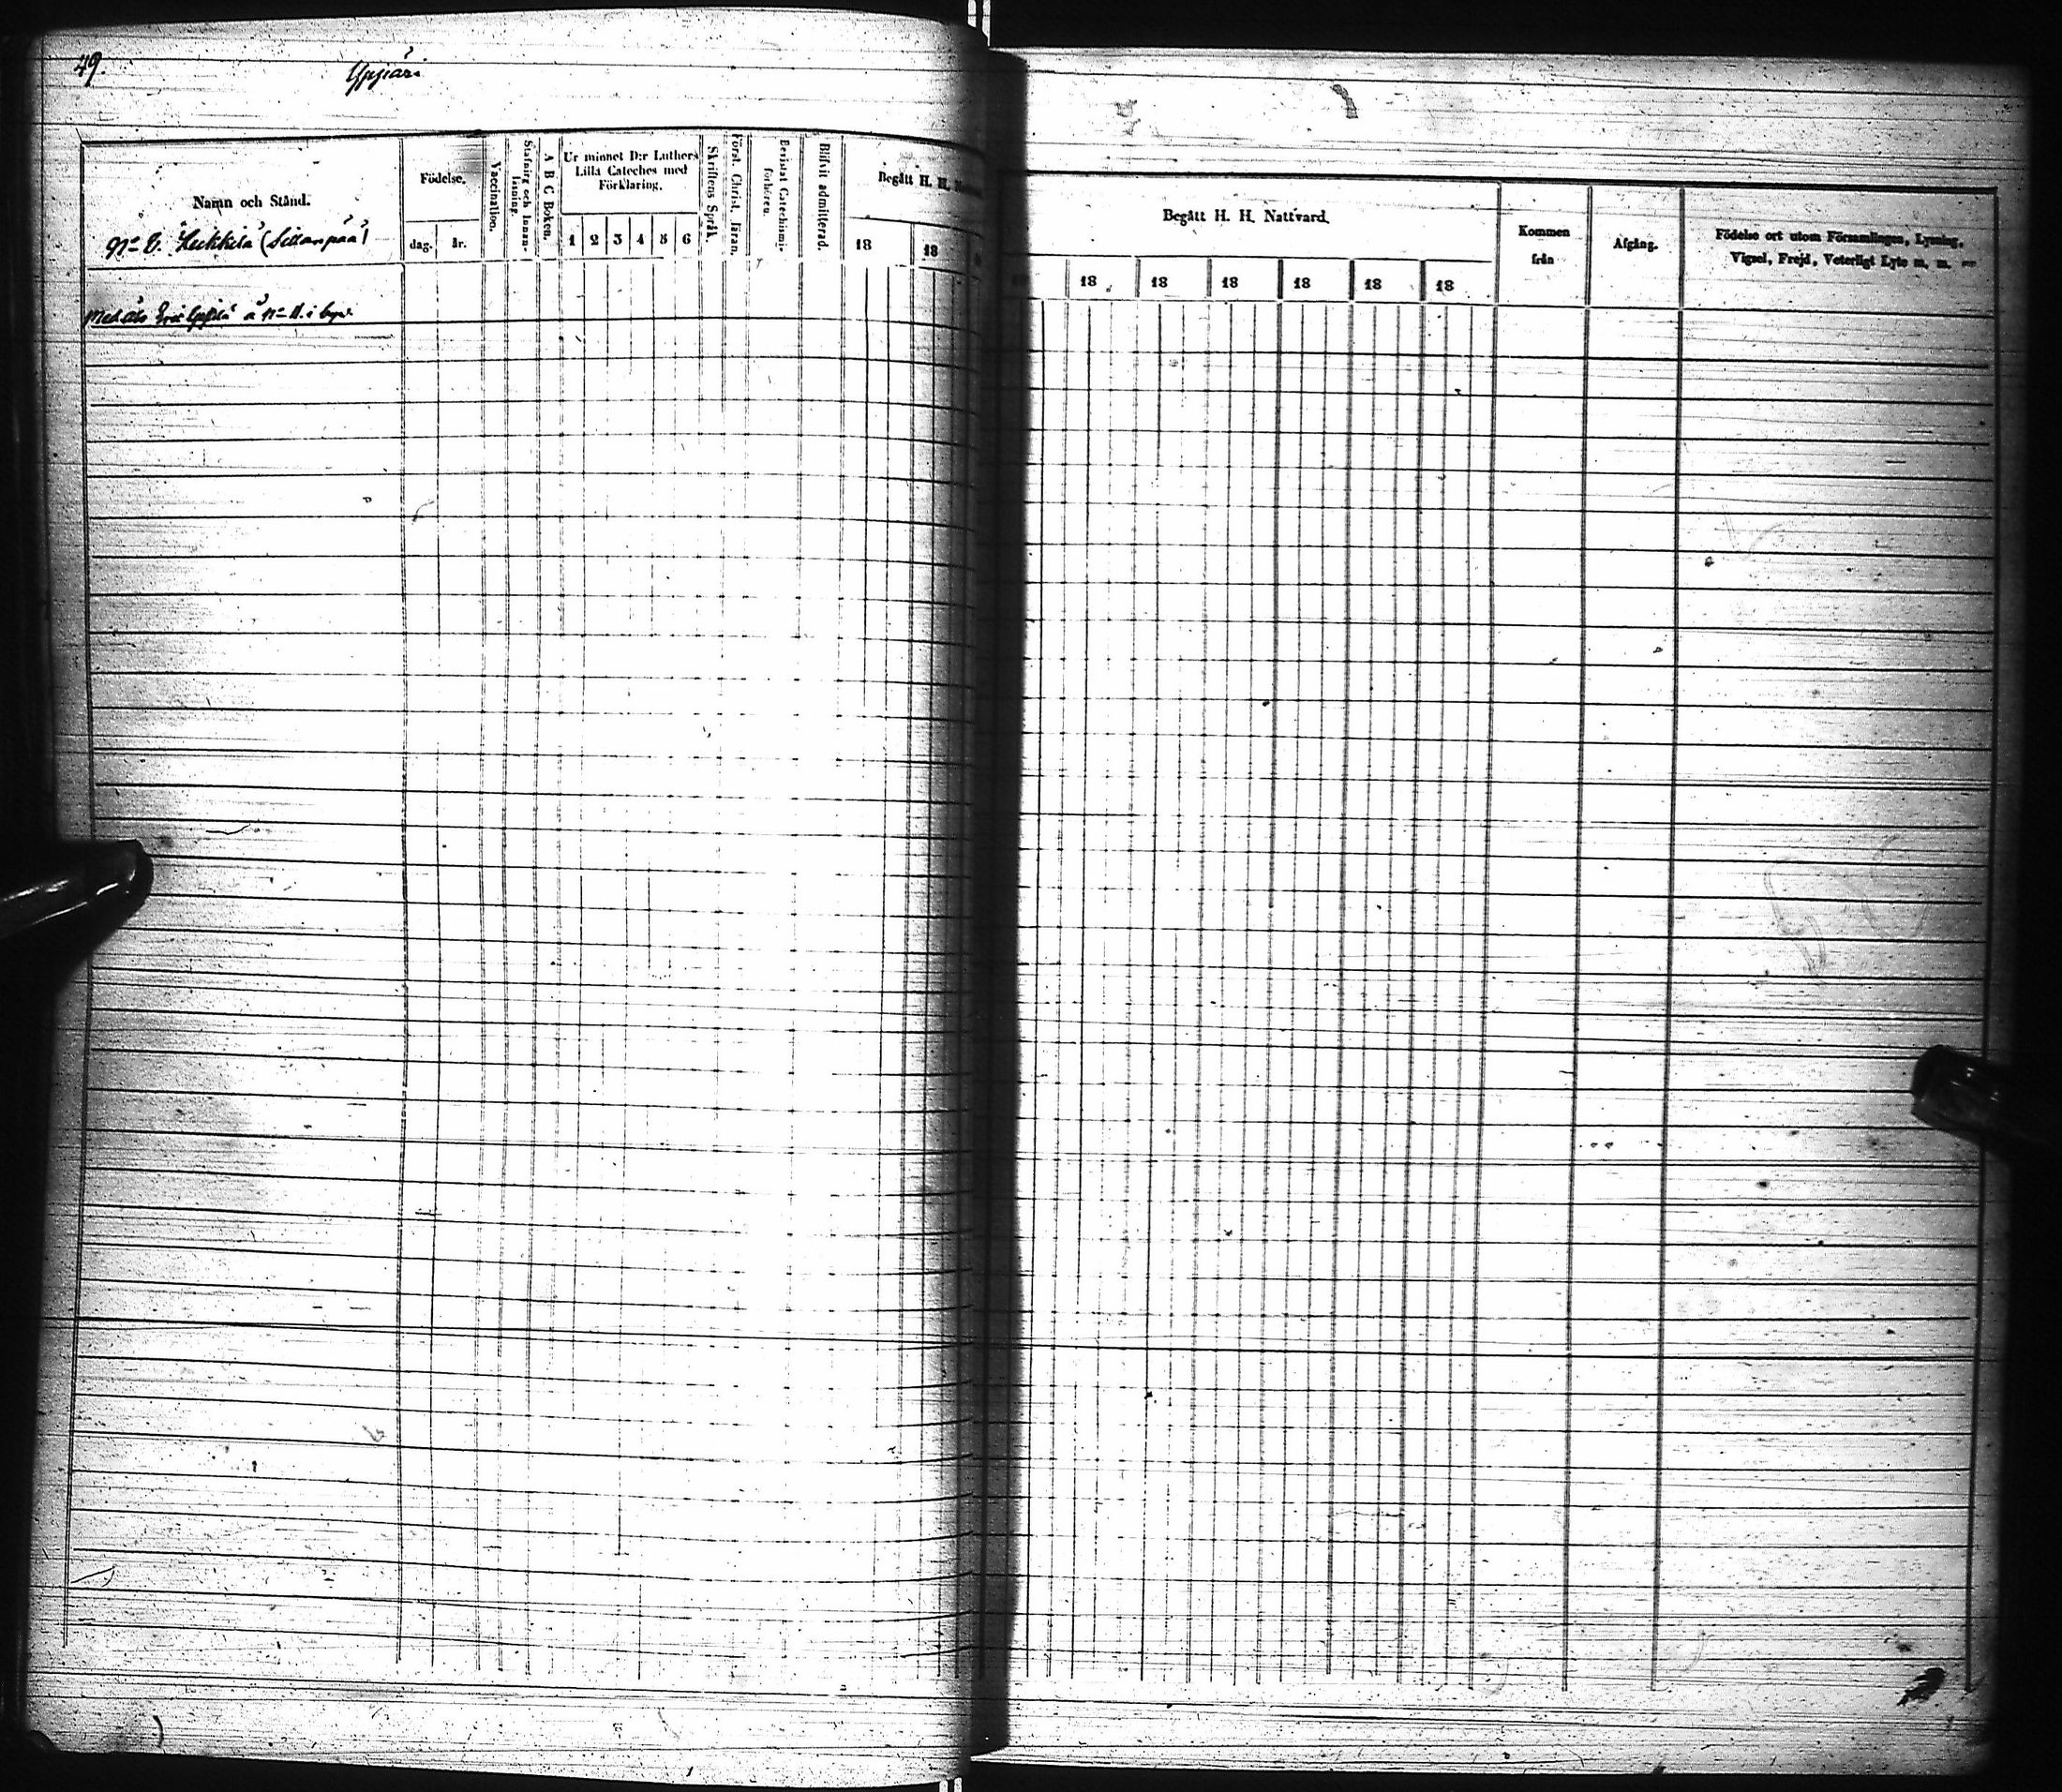 49.
Yppäri
Namn och Stånd.
Födelse.
dag. år.
Vaccination.
Stafning och Innan-
läsning.
A B C Boken.
Ur minnet D:r Luthers
Lilla Cateches med
Förklaring.
1 2 3 4 5 6
Skriftens Språk.
Först. Christ. läran.
Bevistat Catechismi-
förhören.
Blifvit admitterad.
Begått H. H.
18 18
Heikkilä
i byn
Begått H. H. Nattvard.
18 18 18 18 18 18
Kommen
från
Afgång.
Födelse ort utom Församlingen, Lysning,
Vigsel, Frejd, Veterligt Lyte m. m.